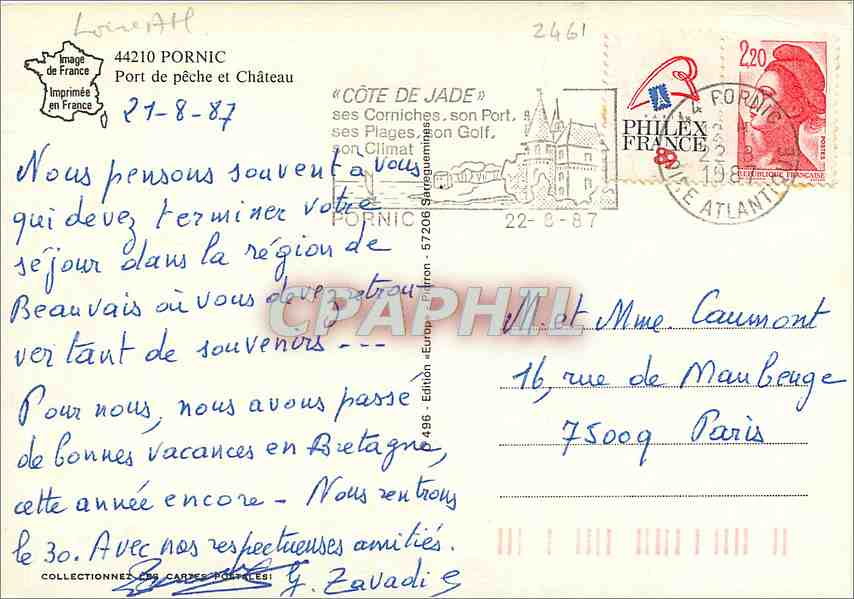 Loire Atl.
2461
Image
de France
Imprimée
en France
44210 PORNIC
Port de pêche et Château
21-8-87
Nous pensons souvent à vous
qui devez terminer votre
séjour dans la région de
Beauvais où vous devez retrou-
ver tant de souvenirs ---
Pour nous, nous avons passé
de bonnes vacances en Bretagne,
cette année encore - Nous rentrons
le 30. Avec nos respectueuses amitiés.
G. Zavadi
COLLECTIONNEZ LES CARTES POSTALES!
«CÔTE DE JADE»
ses Corniches, son Port,
ses Plages, son Golf,
son Climat
PORNIC
22-8-87
PHILEX
FRANCE
89
2,20
POSTES
REPUBLIQUE FRANÇAISE
44 PORNIC
22-8
1987
ATLANTIQUE
496 - Edition «Europ» - Pierron - 57206 Sarreguemines
CPAPHIL
M. et Mme. Caumont
16, rue de Maubeuge
75009 Paris